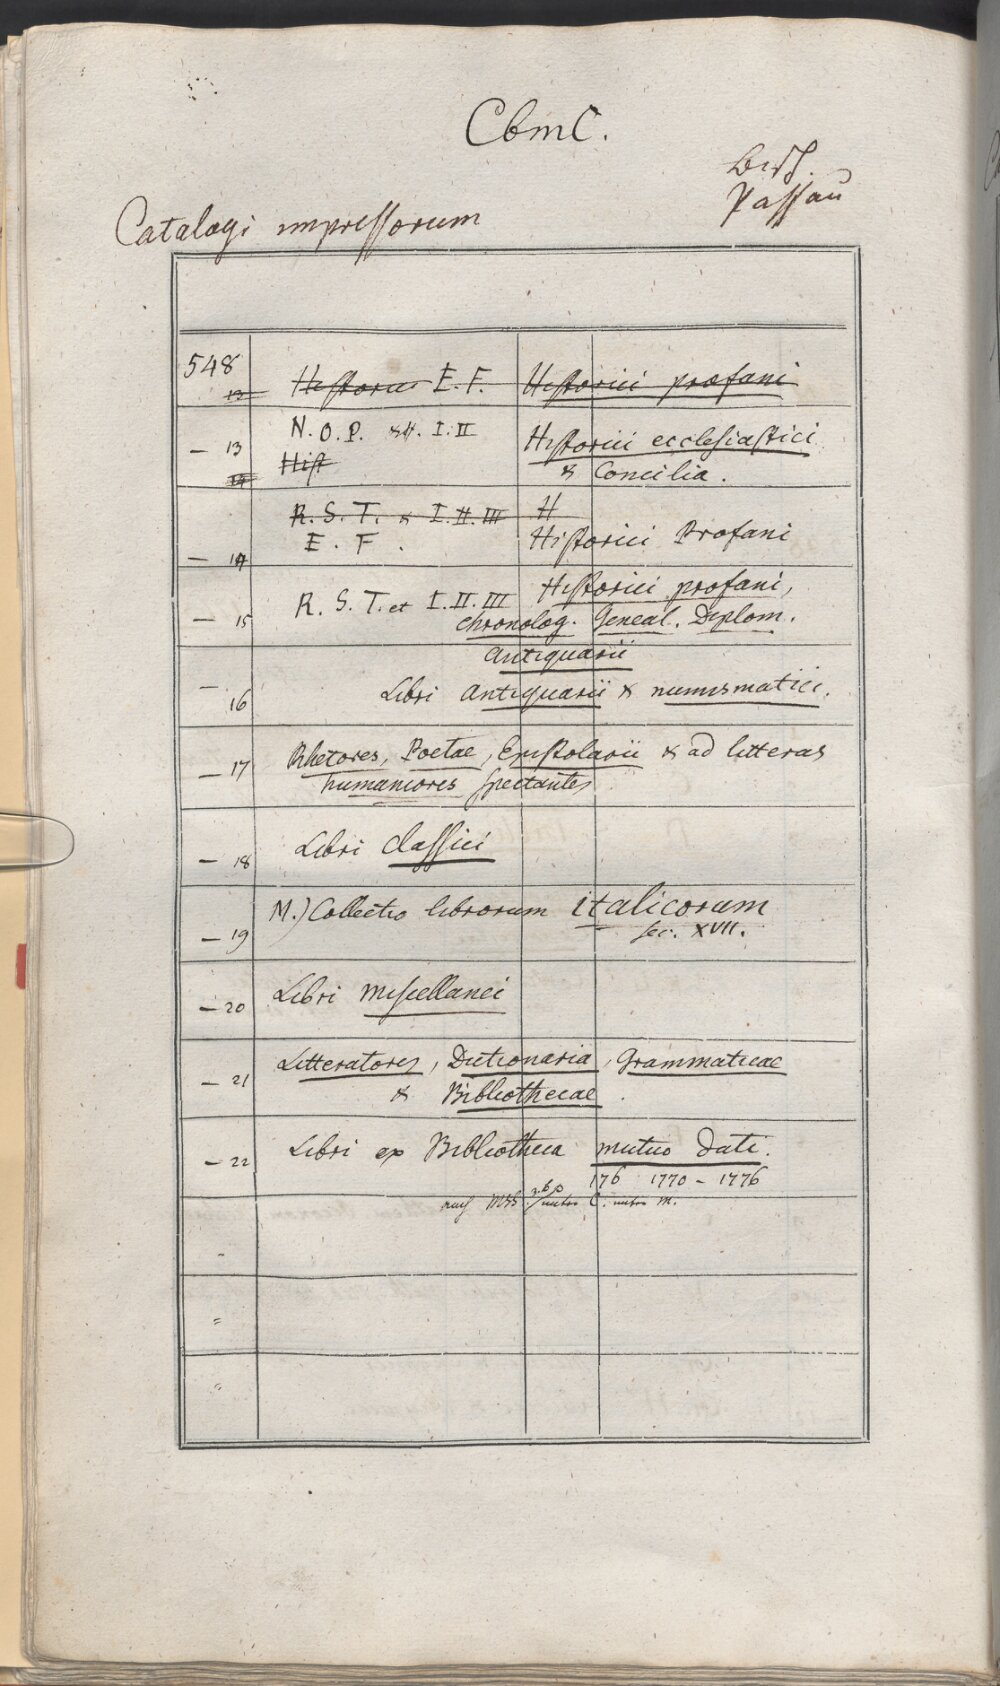 CbmC.
Bisch.
Passau
Catalogi impressorum
548
13 Historici E. F. Historici profani
N. O. P. & H. I. II Historici ecclesiastici
– 13
Hist & Concilia.
14
R. S. T. & I. II. III H
E. F. Historici Profani
– 14
R. S. T. et I. II. III Historici profani,
– 15 chronolog. Geneal. Diplom.
Antiquarii
– 16 Libri Antiquarii & numismatici.
– 17 Rhetores, Poetae, Epistolarii & ad litteras
humaniores spectantes
– 18 Libri classici
M.) Collectio librorum italicorum
– 19 sec. XVII.
– 20 Libri miscellanei
Litteratores, Dictionaria, Grammaticae
– 21 & Bibliothecae.
– 22 Libri ex Bibliotheca mutuo dati.
176 1770 – 1776
auch MSS. C. M.